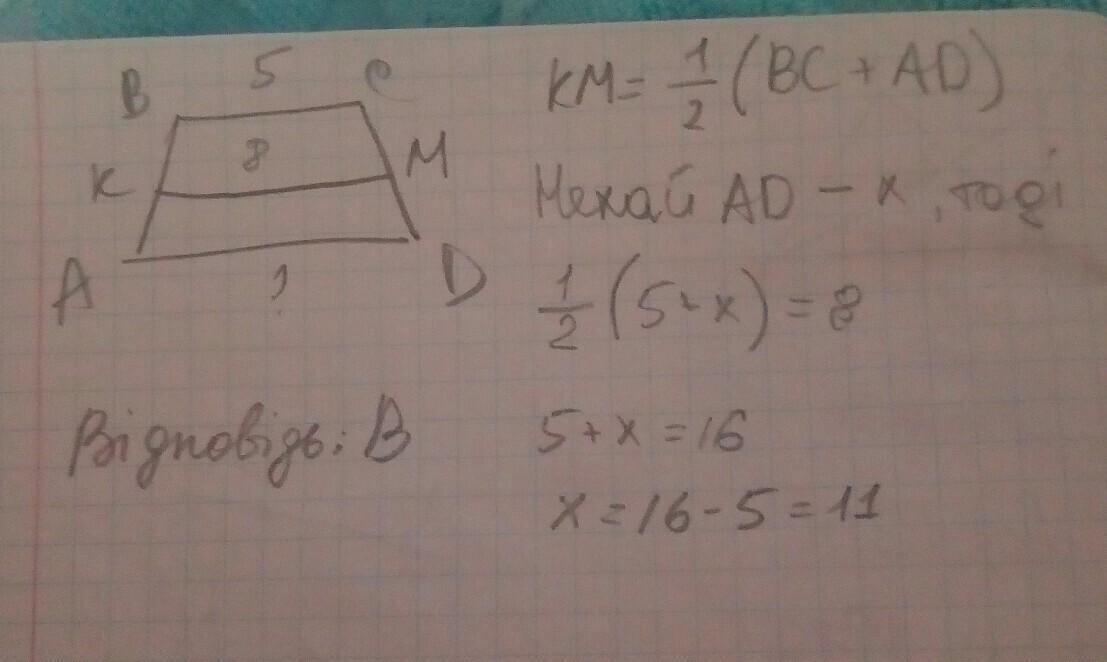 B 5 C
K 8 M
A ? D
KM = 1/2 (BC + AD)
Нехай AD - x, тоді
1/2 (5 + x) = 8
5 + x = 16
x = 16 - 5 = 11
Відповідь: В